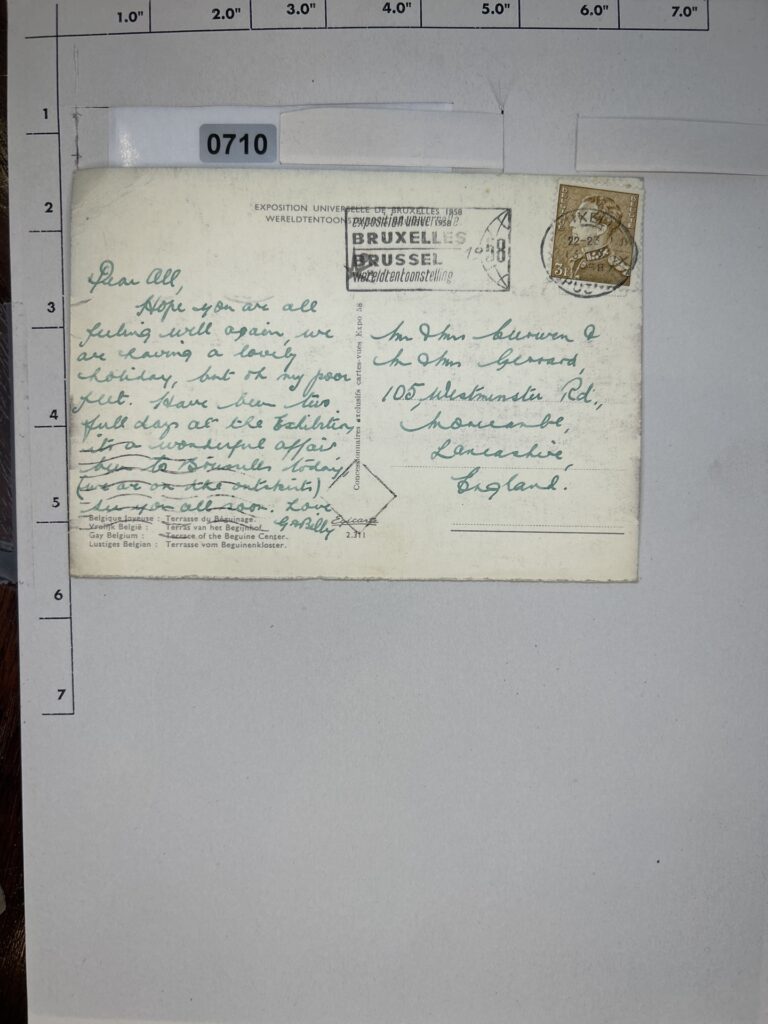 1.0" 2.0" 3.0" 4.0" 5.0" 6.0" 7.0"
1
2
3
4
5
6
7
0710
EXPOSITION UNIVERSELLE DE BRUXELLES 1958
WERELDTENTOONS
exposition universelle
1958
BRUXELLES
BRUSSEL
1958
wereldtentoonstelling
BELGIE
22-23
Dear All,
Hope you are all
feeling well again, we
are having a lovely
holiday, but oh my poor
feet. Have been two
full days at the Exhibition,
it's a wonderful affair
to Bruxelles today
(we are on the outskirts)
See you all soon. Love
Billy
Concessionnaires exclusifs cartes-vues Expo 58
Mr & Mrs Curwen &
Mr & Mrs Gerrard,
105, Westminster Rd.,
Morecambe,
Lancashire,
England.
Belgique Joyeuse : Terrasse du Béguinage.
Vrolijk België : Terras van het Begijnhof.
Gay Belgium : Terrace of the Beguine Center.
Lustiges Belgien : Terrasse vom Beguinenkloster.
Epicarte
2.311